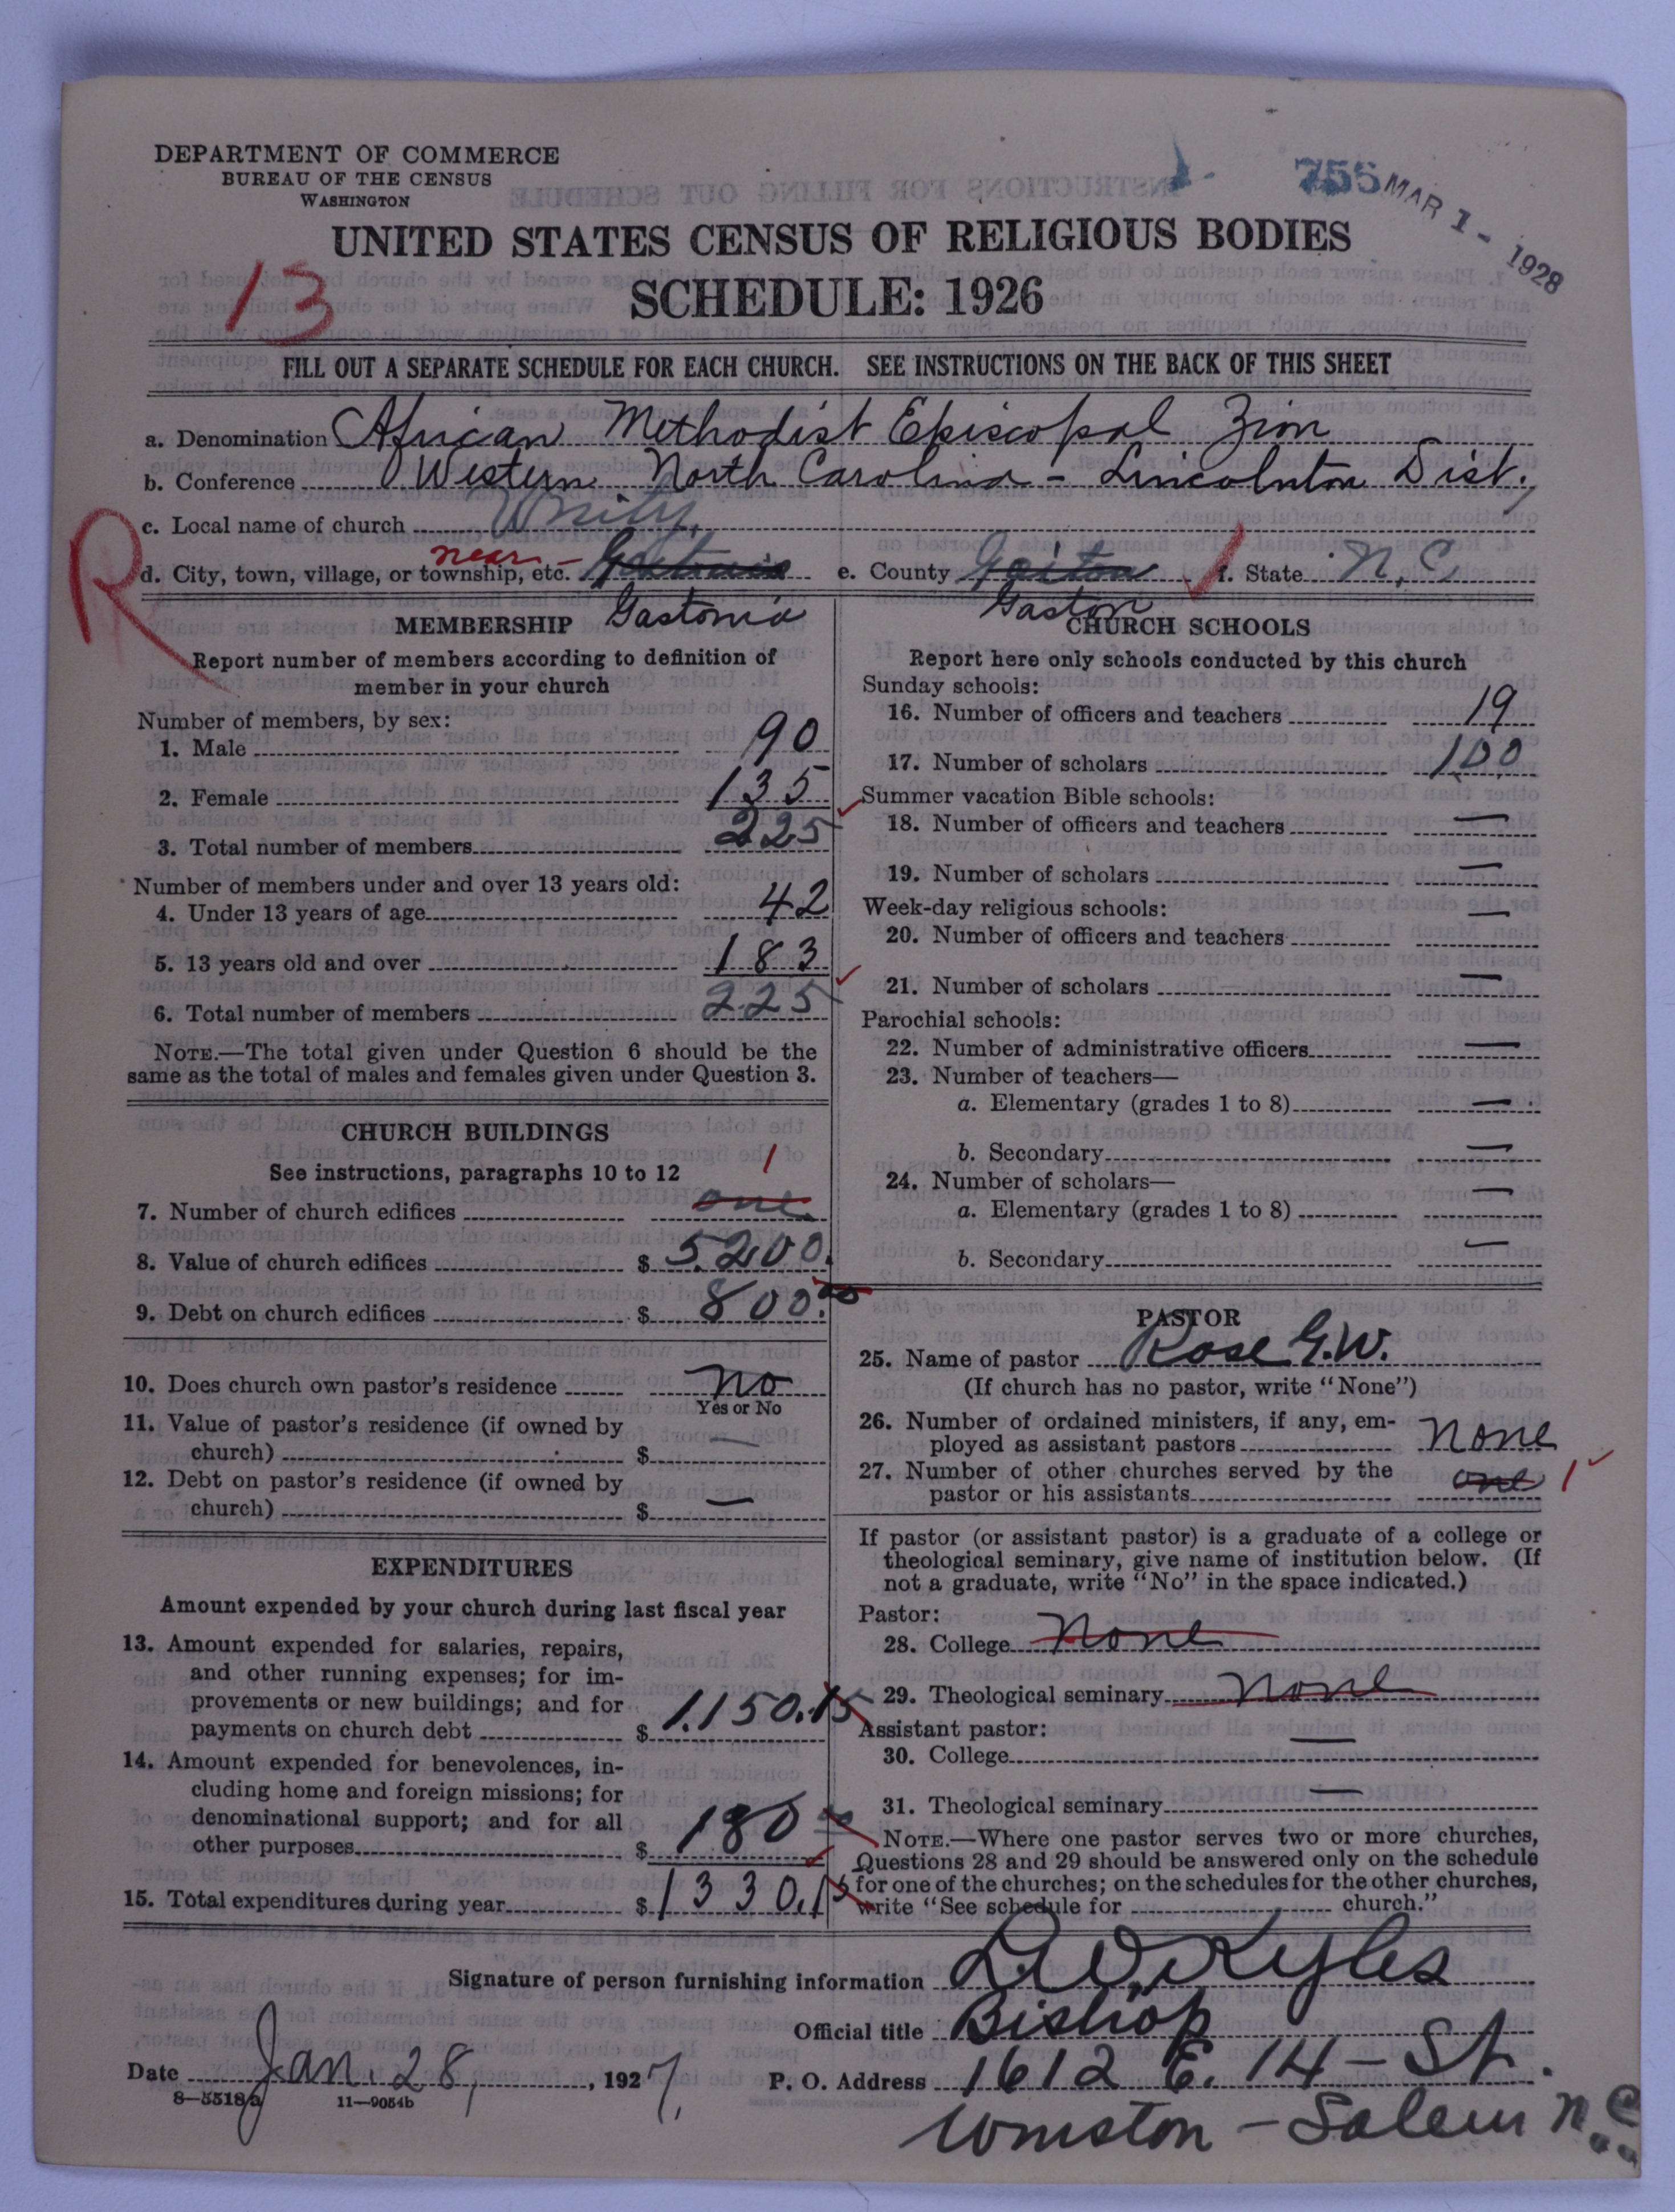 DEPARTMENT OF COMMERCE
BUREAU OF THE CENSUS
WASHINGTON
756
MAR 1 - 1928
UNITED STATES CENSUS OF RELIGIOUS BODIES
13
SCHEDULE: 1926
FILL OUT A SEPARATE SCHEDULE FOR EACH CHURCH. SEE INSTRUCTIONS ON THE BACK OF THIS SHEET
a. Denomination African Methodist Episcopal Zion
b. Conference Western North Carolina - Lincolnton Dist.
c. Local name of church Unity
R
d. City, town, village, or township, etc. near - Gastonia
e. County Gaston f. State N.C.
MEMBERSHIP
Report number of members according to definition of
member in your church
Number of members, by sex:
1. Male 90
2. Female 135
3. Total number of members 225
Number of members under and over 13 years old:
4. Under 13 years of age 42
5. 13 years old and over 183
6. Total number of members 225
NOTE.—The total given under Question 6 should be the
same as the total of males and females given under Question 3.
CHURCH BUILDINGS
See instructions, paragraphs 10 to 12
7. Number of church edifices one 1
8. Value of church edifices $ 5200.
9. Debt on church edifices $ 800.00
10. Does church own pastor's residence No
Yes or No
11. Value of pastor's residence (if owned by
church) $ —
12. Debt on pastor's residence (if owned by
church) $ —
EXPENDITURES
Amount expended by your church during last fiscal year
13. Amount expended for salaries, repairs,
and other running expenses; for im-
provements or new buildings; and for
payments on church debt $ 1,150.15
14. Amount expended for benevolences, in-
cluding home and foreign missions; for
denominational support; and for all
other purposes $ 180 00
15. Total expenditures during year $ 1330.15
CHURCH SCHOOLS
Report here only schools conducted by this church
Sunday schools:
16. Number of officers and teachers 19
17. Number of scholars 100
Summer vacation Bible schools:
18. Number of officers and teachers —
19. Number of scholars —
Week-day religious schools:
20. Number of officers and teachers —
21. Number of scholars —
Parochial schools:
22. Number of administrative officers —
23. Number of teachers—
a. Elementary (grades 1 to 8) —
b. Secondary —
24. Number of scholars—
a. Elementary (grades 1 to 8) —
b. Secondary —
PASTOR
25. Name of pastor Rose G.W.
(If church has no pastor, write "None")
26. Number of ordained ministers, if any, em-
ployed as assistant pastors None
27. Number of other churches served by the
pastor or his assistants one 1
If pastor (or assistant pastor) is a graduate of a college or
theological seminary, give name of institution below. (If
not a graduate, write "No" in the space indicated.)
Pastor:
28. College None
29. Theological seminary None
Assistant pastor:
30. College —
31. Theological seminary —
NOTE.—Where one pastor serves two or more churches,
Questions 28 and 29 should be answered only on the schedule
for one of the churches; on the schedules for the other churches,
write "See schedule for church."
Signature of person furnishing information L.W. Kyles
Official title Bishop
Date Jan. 28, 1927.
P. O. Address 1612 E. 14 - St.
Winston - Salem N.C.
8—5518a
11—9054b